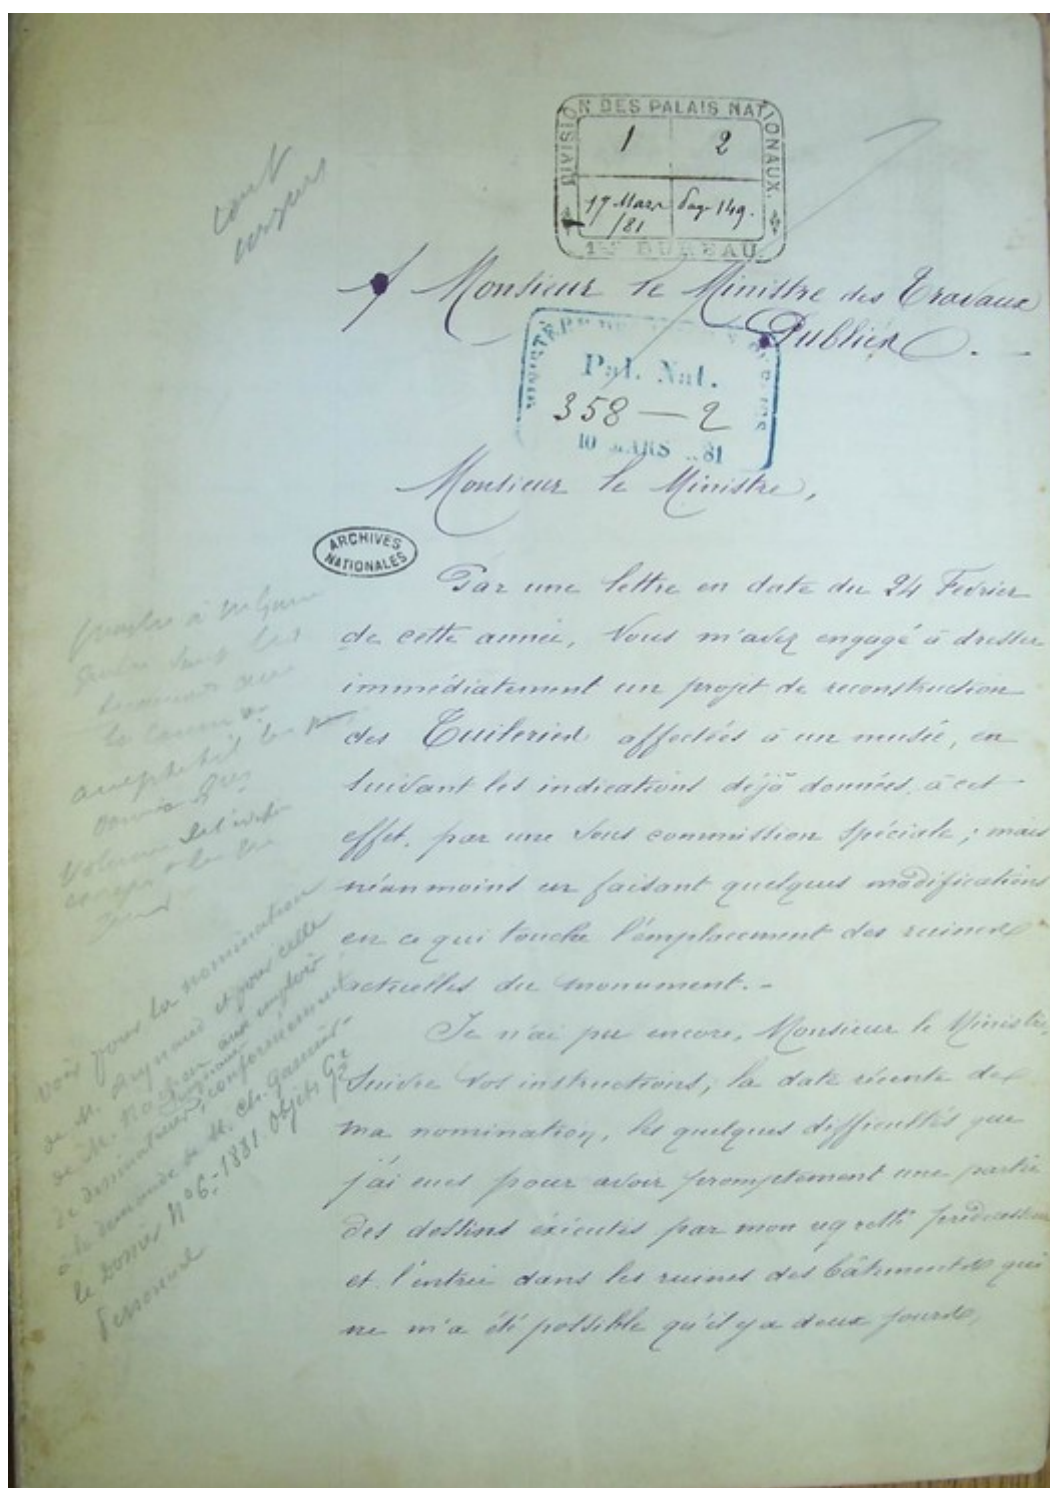 tout
DIVISION DES PALAIS NATIONAUX.
1 2
17 Mars /81 Pag. 149.
1er BUREAU
A Monsieur le Ministre des Travaux
Publics.
Pal. Nat.
358 — 2
10 MARS 81
Monsieur le Ministre,
ARCHIVES
NATIONALES
Par une lettre en date du 24 Fevrier
de cette année, Vous m'avez engagé à dresser
immédiatement un projet de reconstruction
des Tuileries affectées à un musée, en
suivant les indications déjà données, à cet
effet, par une Sous commission Spéciale; mais
néanmoins en faisant quelques modifications
en ce qui touche l'emplacement des ruines
actuelles du monument. -
Je n'ai pu encore, Monsieur le Ministre,
Suivre Vos instructions; la date récente de
ma nomination, les quelques difficultés que
j'ai eues pour avoir promptement une partie
des dessins éxécutés par mon regretté prédécesseur
et l'entrée dans les ruines des bâtiments qui
ne m'a été possible qu'il y a deux jours,
voir pour la nomination
de M. Aynaud et pour celle
de M.
de dessinateur, conformément
à la demande de M. Ch. Garnier
le Dossier N° 6 - 1881. Objets Gx
Personnel